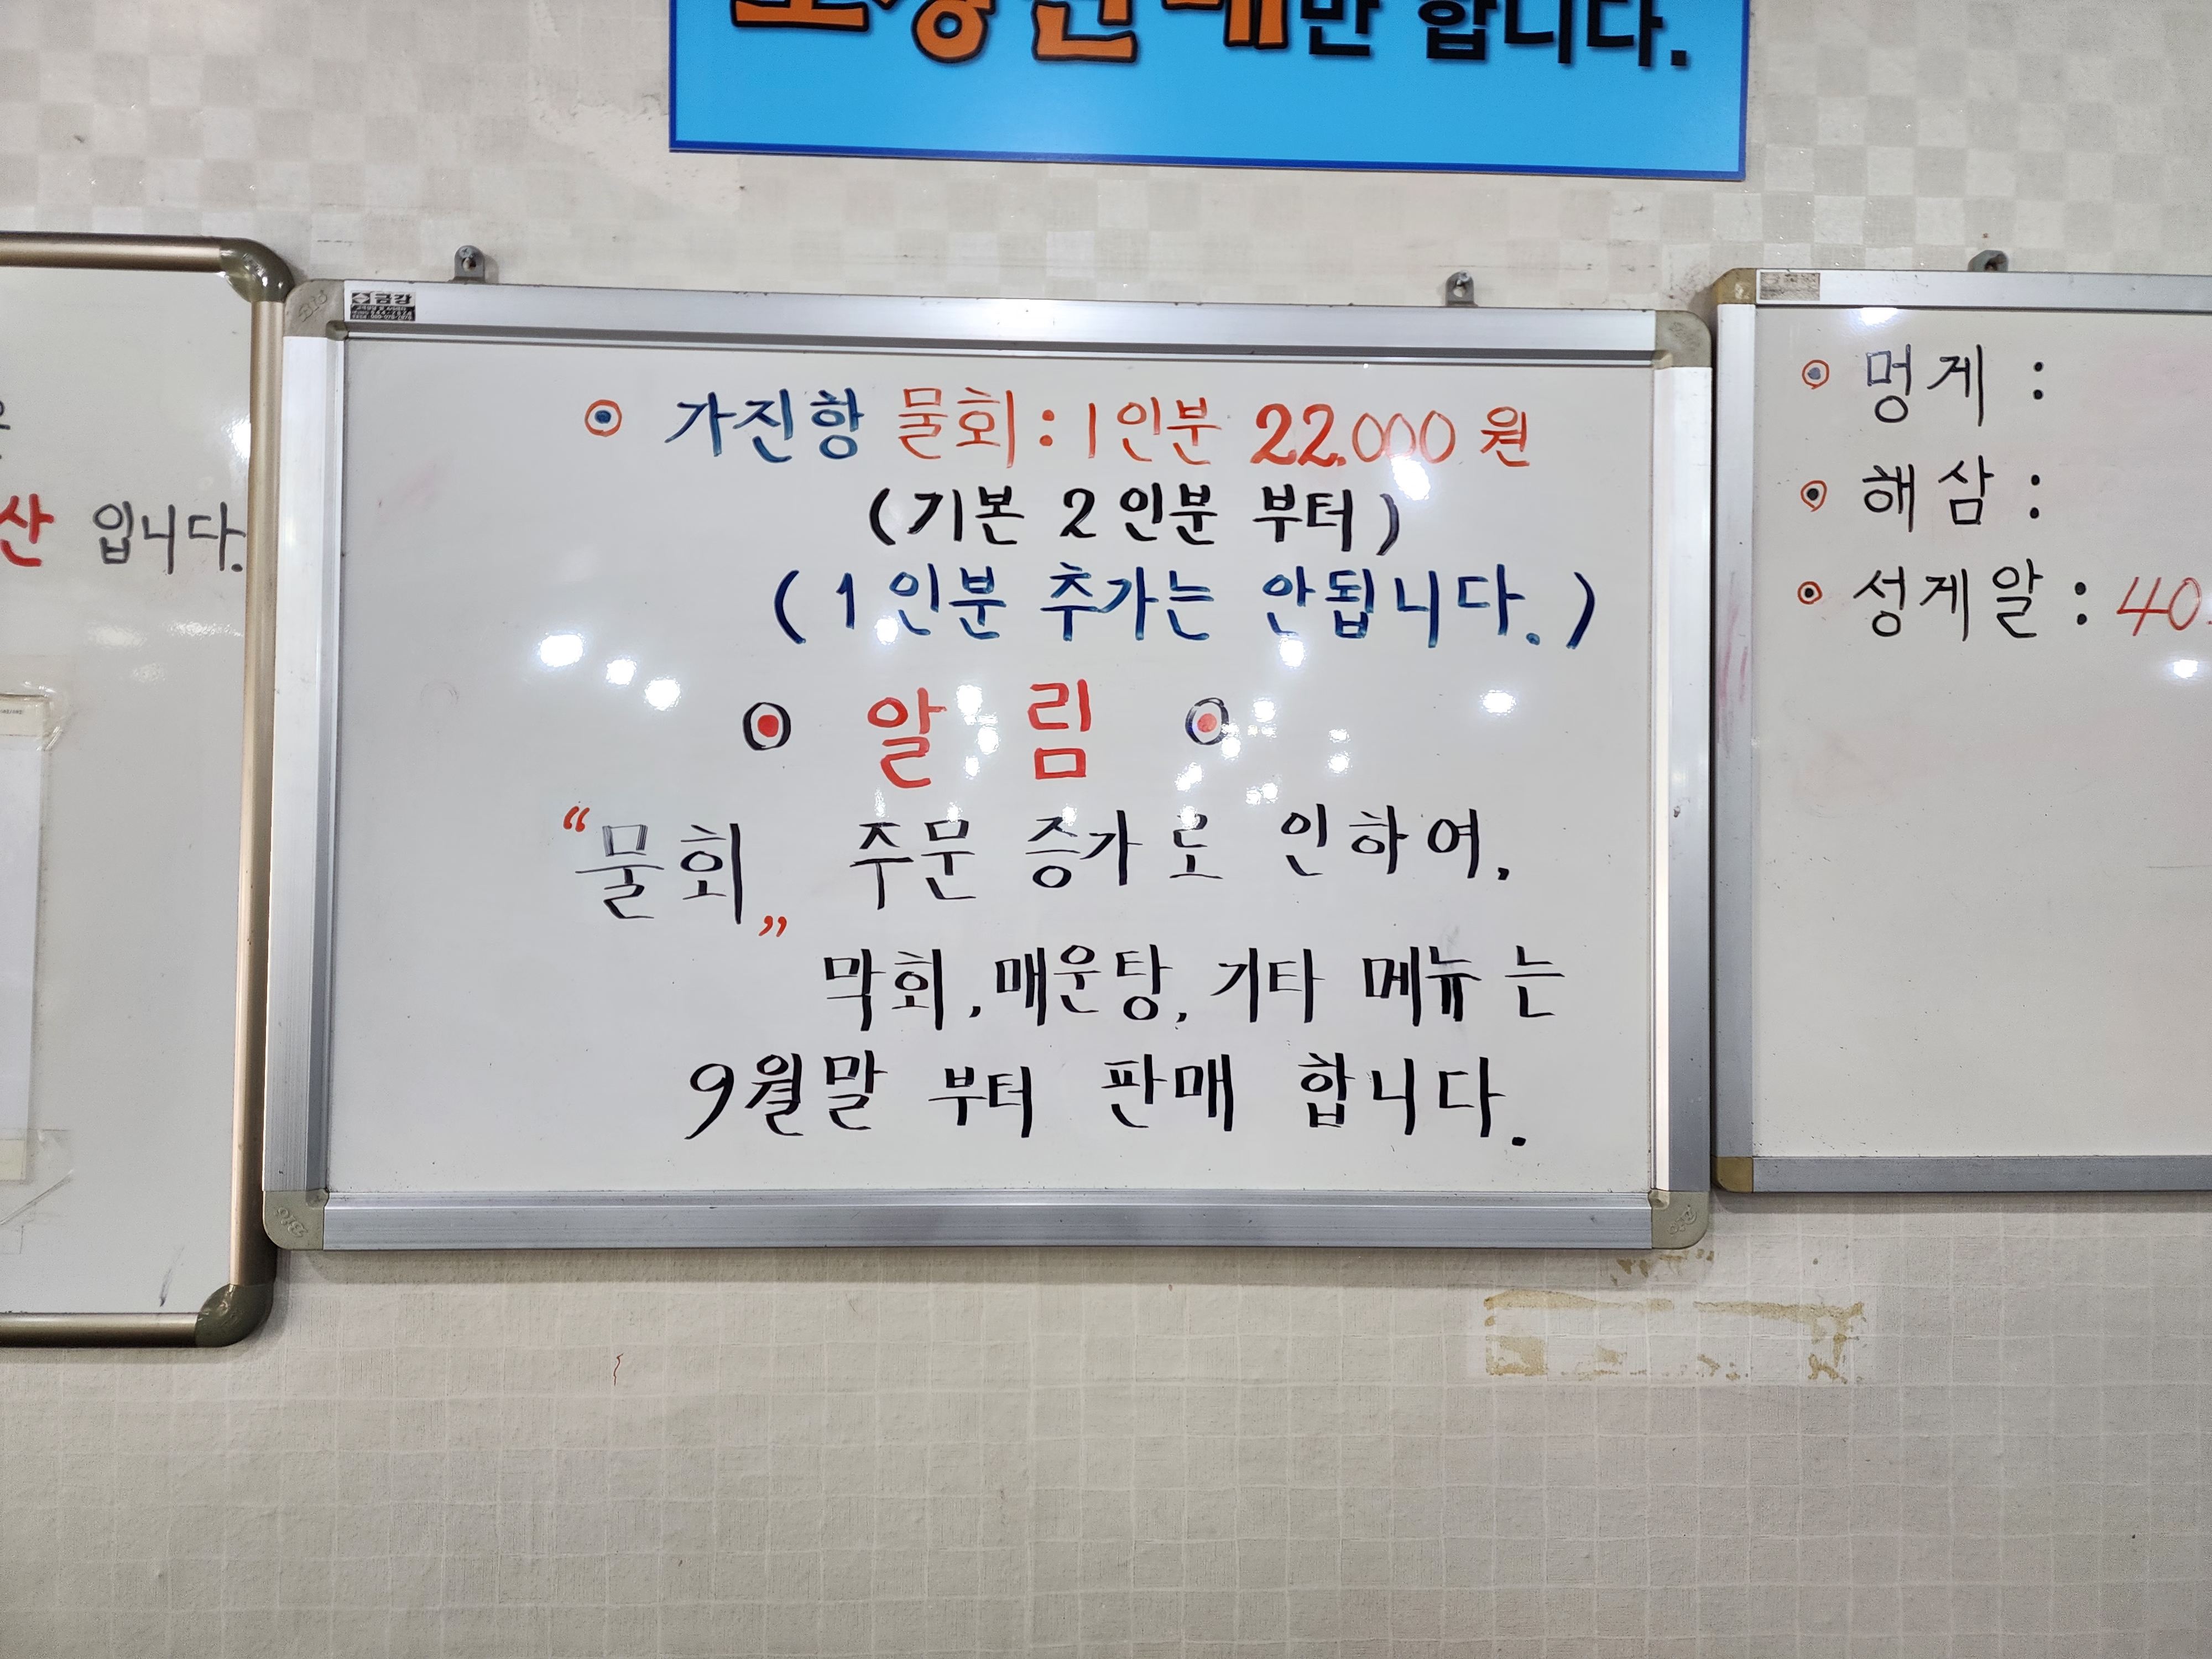 만 합니다.
산 입니다.
금강
⊙ 가진항 물회 : 1인분 22.000원
(기본 2인분 부터)
(1인분 추가는 안됩니다.)
⊙ 알 림 ⊙
“물회„ 주문 증가로 인하여,
막회, 매운탕, 기타 메뉴 는
9월말 부터 판매 합니다.
⊙ 멍게 :
⊙ 해삼 :
⊙ 성게알 : 40.